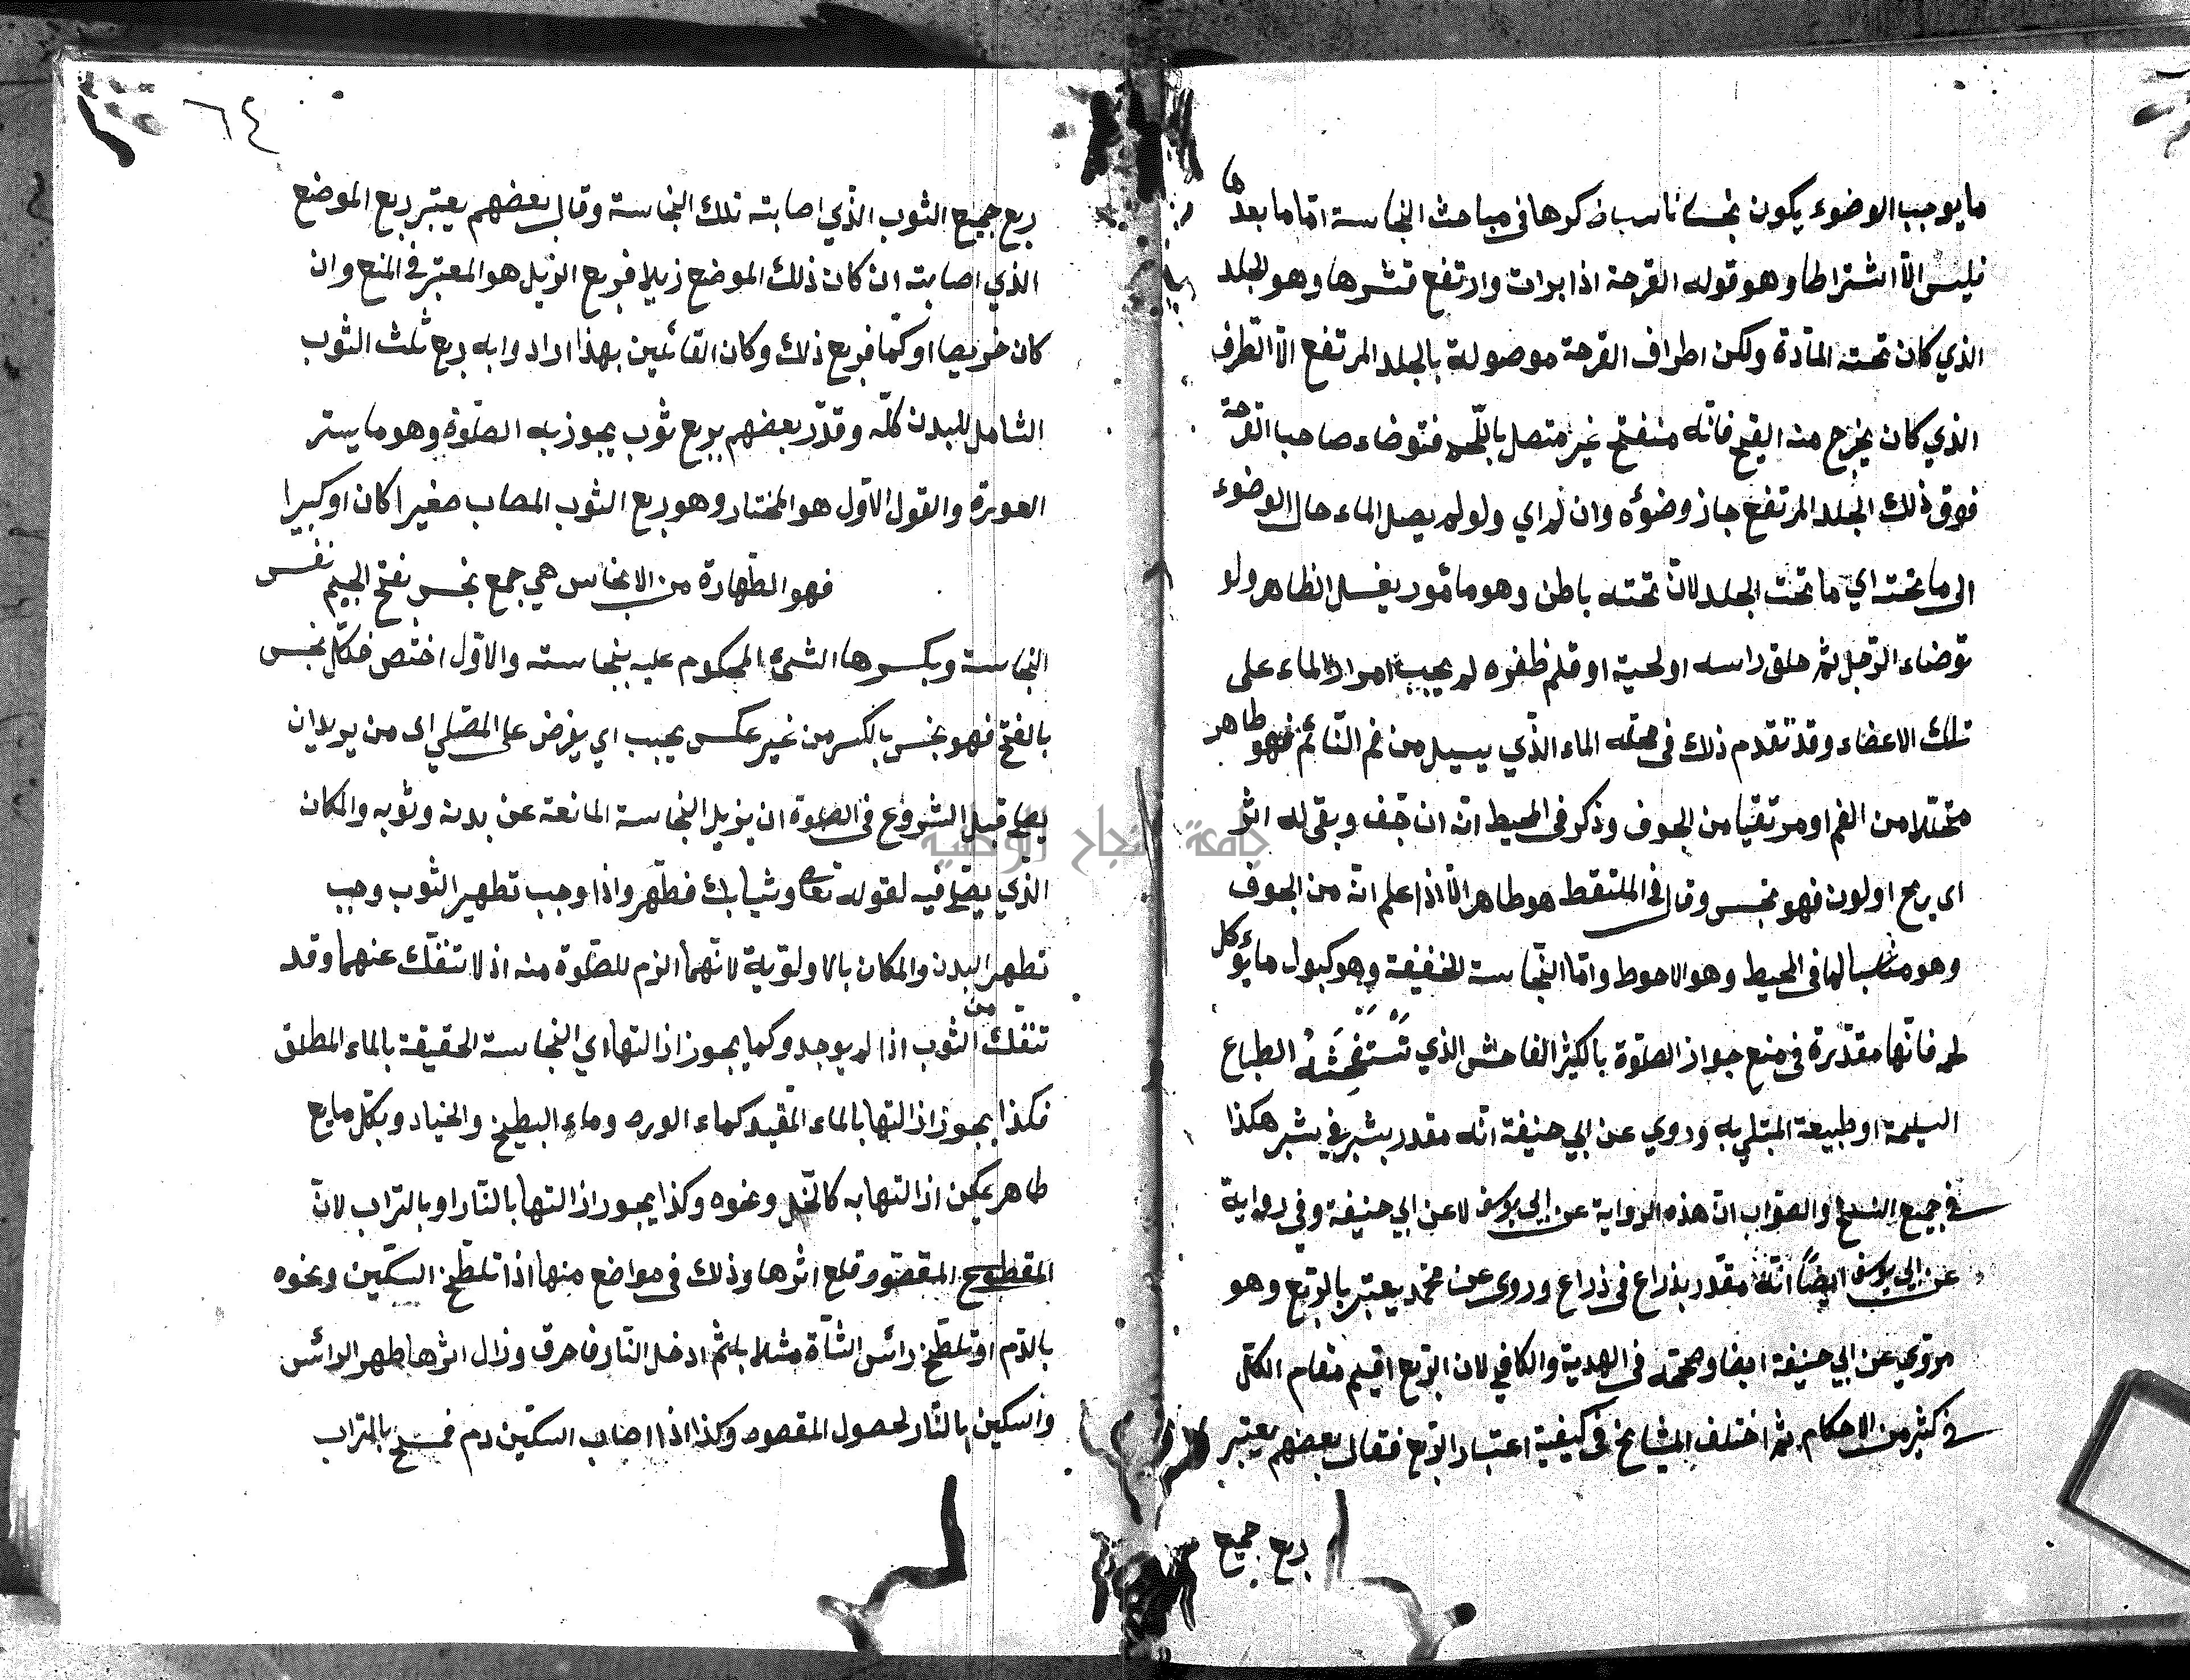 ما يوجب الوضوء يكون نجسا ناسب ذكرها في مباحث النجاسة اما ما بعدها
فليس الا اشتراطا وهو قوله القرحة اذا برات وارتفع قشرها وهو الجلد
الذي كان تحته المادة ولكن اطراف القرحة موصولة بالجلد المرتفع الا الطرف
الذي كان يخرج منه القيح فانه منفتح غير متصل باللحم فتوضاء صاحب القرحة
فوق ذلك الجلد المرتفع جاز وضوئه وان لم اي ولو لم يصل الماء حال الوضوء
الى ما تحته اي ما تحت الجلد لان تحته باطن وهو مامور بغسل الظاهر ولو
توضاء الرجل ثم حلق راسه او لحية او قلم ظفره لم يجب امرار الماء على
تلك الاعضاء وقد تقدم ذلك في محله الماء الذي يسيل من فم النائم فهو طاهر
متحللا من الفم او مرتقيا من الجوف وذكر في المحيط انه ان جف وبقي له اثر
اي ريح او لون فهو نجس وقال في الملتقط هو طاهر الا اذا علم انه من الجوف
وهو مناسبا لما في المحيط وهو الاحوط واما النجاسة الخفيفة وهو كبول ما يؤكل
لحمه فانها مقدرة في منع جواز الصلوة بالكثير الفاحش الذي تستفحشه الطباع
السليمة او طبيعة المبتلي به وروي عن ابي حنيفة انه مقدر بشبر في شبر هكذا
في جميع النسخ والصواب ان هذه الرواية عن ابي يوسف لا عن ابي حنيفة وفي رواية
عن ابي يوسف ايضا انه مقدر بذراع في ذراع وروى عن محمد يعتبر بالربع وهو
مروي عن ابي حنيفة ايضا وصححه في الهدية والكافي لان الربع اقيم مقام الكل
في كثير من الاحكام ثم اختلف المشايخ في كيفية اعتبار الربع فقال بعضهم يعتبر
ربع جميع
٦٤
ربع جميع الثوب الذي اصابته تلك النجاسة وقال بعضهم يعتبر ربع الموضع
الذي اصابته ان كان ذلك الموضع ذيلا فربع الذيل هو المعتبر في المنع وان
كان خريصا او كما فربع ذلك وكان القائلين بهذا ارادوا به ربع ثلث الثوب
الشامل للبدن كله وقدر بعضهم بربع ثوب يجوز به الصلوة وهو ما يستر
العورة والقول الاول هو المختار وهو ربع الثوب المصاب صغيرا كان او كبيرا
فهو الطهارة من الانجاس هي جمع نجس بفتح الجيم نفس
النجاسة وبكسرها الشيئ المحكوم عليه بنجاسته والاول اختص فكل نجس
بالفتح فهو نجس بالكسر من غير عكس يجب اي يفرض على المصلي اى من يريد ان
يصلي قبل الشروع في الصلوة ان يزيل النجاسة المانعة عن بدنه وثوبه والمكان
الذي يصلي فيه لقوله تعالى وثيابك فطهر واذا وجب تطهير الثوب وجب
تطهير البدن والمكان بالاولوية لانهما الزم للصلوة منه اذ لا تنفك عنهما وقد
تنفك من الثوب اذا لم يوجد وكما يجوز ازالتها اي النجاسة الحقيقة بالماء المطلق
فكذا يجوز ازالتها بالماء المقيد كماء الورد وماء البطيخ والخيار وبكل مايع
طاهر يمكن ازالتها به كالخل ونحوه وكذا يجوز ازالتها بالنار او بالتراب لان
المقطوح المقصود قلع اثرها وذلك في مواضع منها اذا تلطخ السكين ونحوه
بالدم او تلطخ رائس الشاة مثلا به ثم ادخل النار فاحرق وزال اثرها طهر الرائس
والسكين بالنار لحصول المقصود وكذا اذا اصاب السكين دم فمسح بالتراب
جامعة النجاح الوطنية